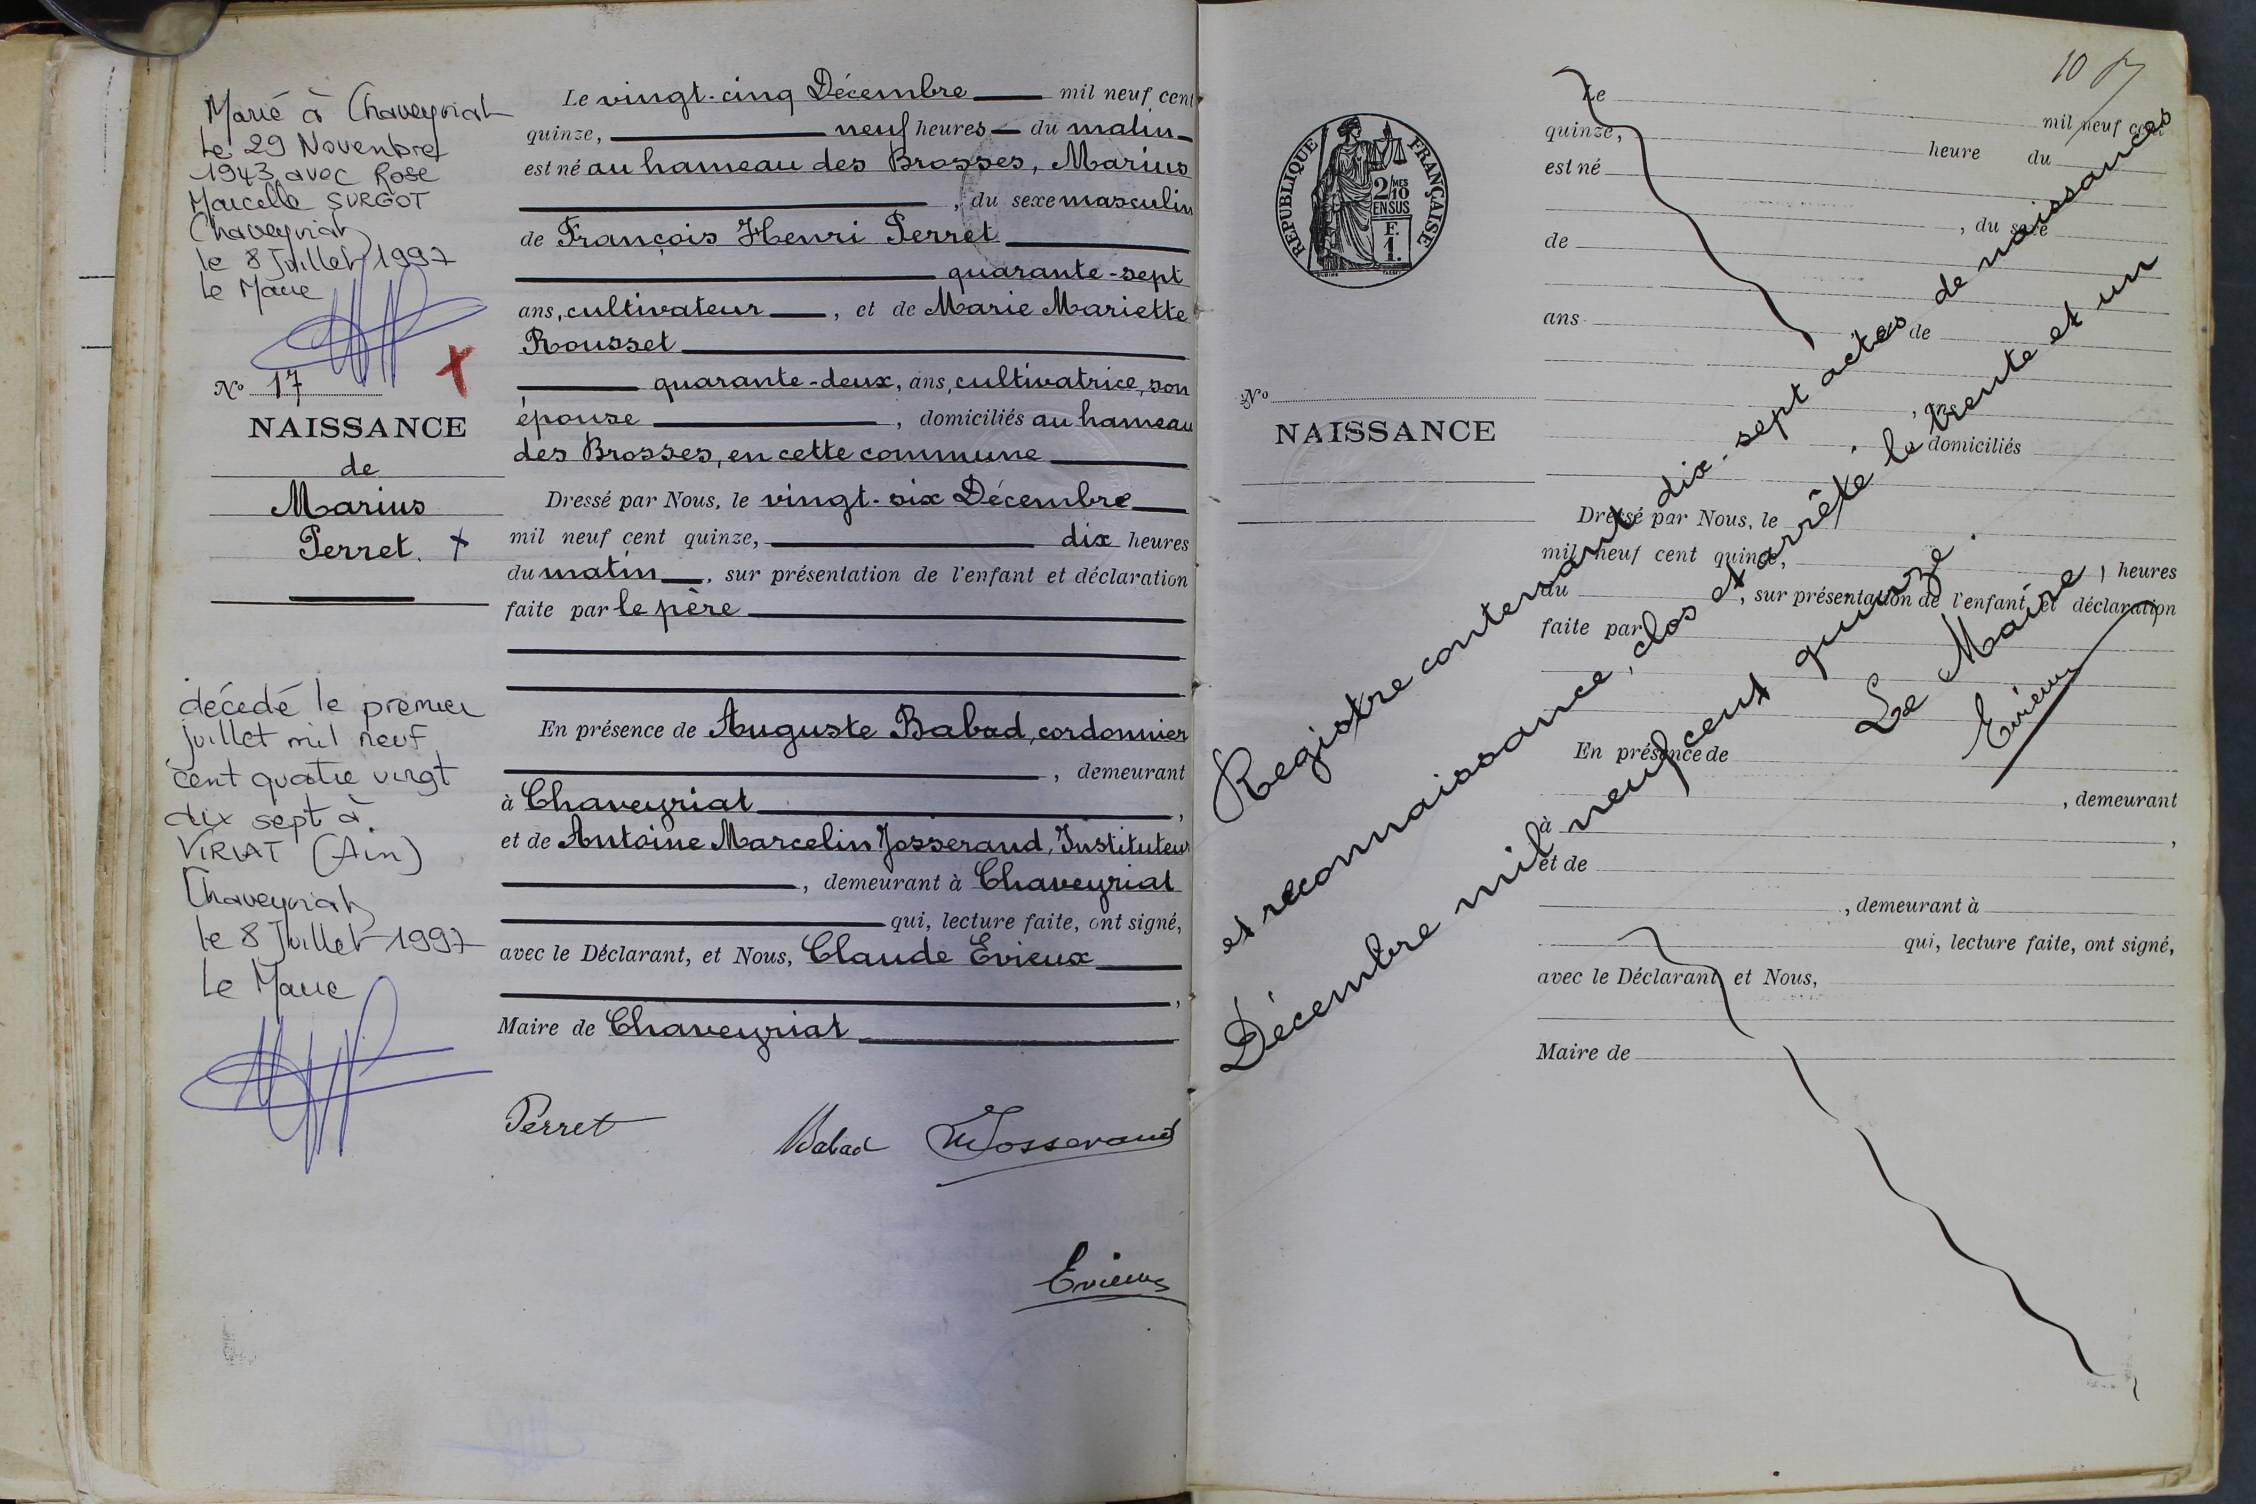 Marié à Chaveyriat
Le 29 Novembre
1943 avec Rose
Marcelle SURGOT
Chaveyriat
le 8 Juillet 1997
Le Maire
No 17
NAISSANCE
de
Marius
Perret.
décédé le premier
juillet mil neuf
cent quatre vingt
dix sept à
VIRIAT (Ain)
Chaveyriat
le 8 Juillet 1997
Le Maire
Le vingt-cinq Décembre mil neuf cent
quinze, neuf heures du matin
est né au hameau des Brosses, Marius
, du sexe masculin
de François Henri Perret
quarante-sept
ans, cultivateur , et de Marie Mariette
Rousset
quarante-deux, ans, cultivatrice, son
épouse , domiciliés au hameau
des Brosses, en cette commune
Dressé par Nous, le vingt-six Décembre
mil neuf cent quinze, dix heures
du matin , sur présentation de l'enfant et déclaration
faite par le père
En présence de Auguste Babad, cordonnier
, demeurant
à Chaveyriat ,
et de Antoine Marcelin Josserand, Instituteur
, demeurant à Chaveyriat
qui, lecture faite, ont signé,
avec le Déclarant, et Nous, Claude Evieux
,
Maire de Chaveyriat
Perret Babad MJosserand
Evieux
10
RÉPUBLIQUE FRANÇAISE
2/10 MES
EN SUS
F.
1.
No
NAISSANCE
Le
mil neuf cent
quinze, heure du
est né
, du sexe
de
ans de
domiciliés
Dressé par Nous, le
mil neuf cent quinze, heures
du , sur présentation de l'enfant et déclaration
faite par
En présence de
, demeurant
à ,
et de
, demeurant à
qui, lecture faite, ont signé,
avec le Déclarant et Nous,
Maire de
Registre contenant dix-sept actes de naissances
et reconnaissance, clos et arrêté le trente et un
Décembre mil neuf cent quinze.
Le Maire,
Evieux